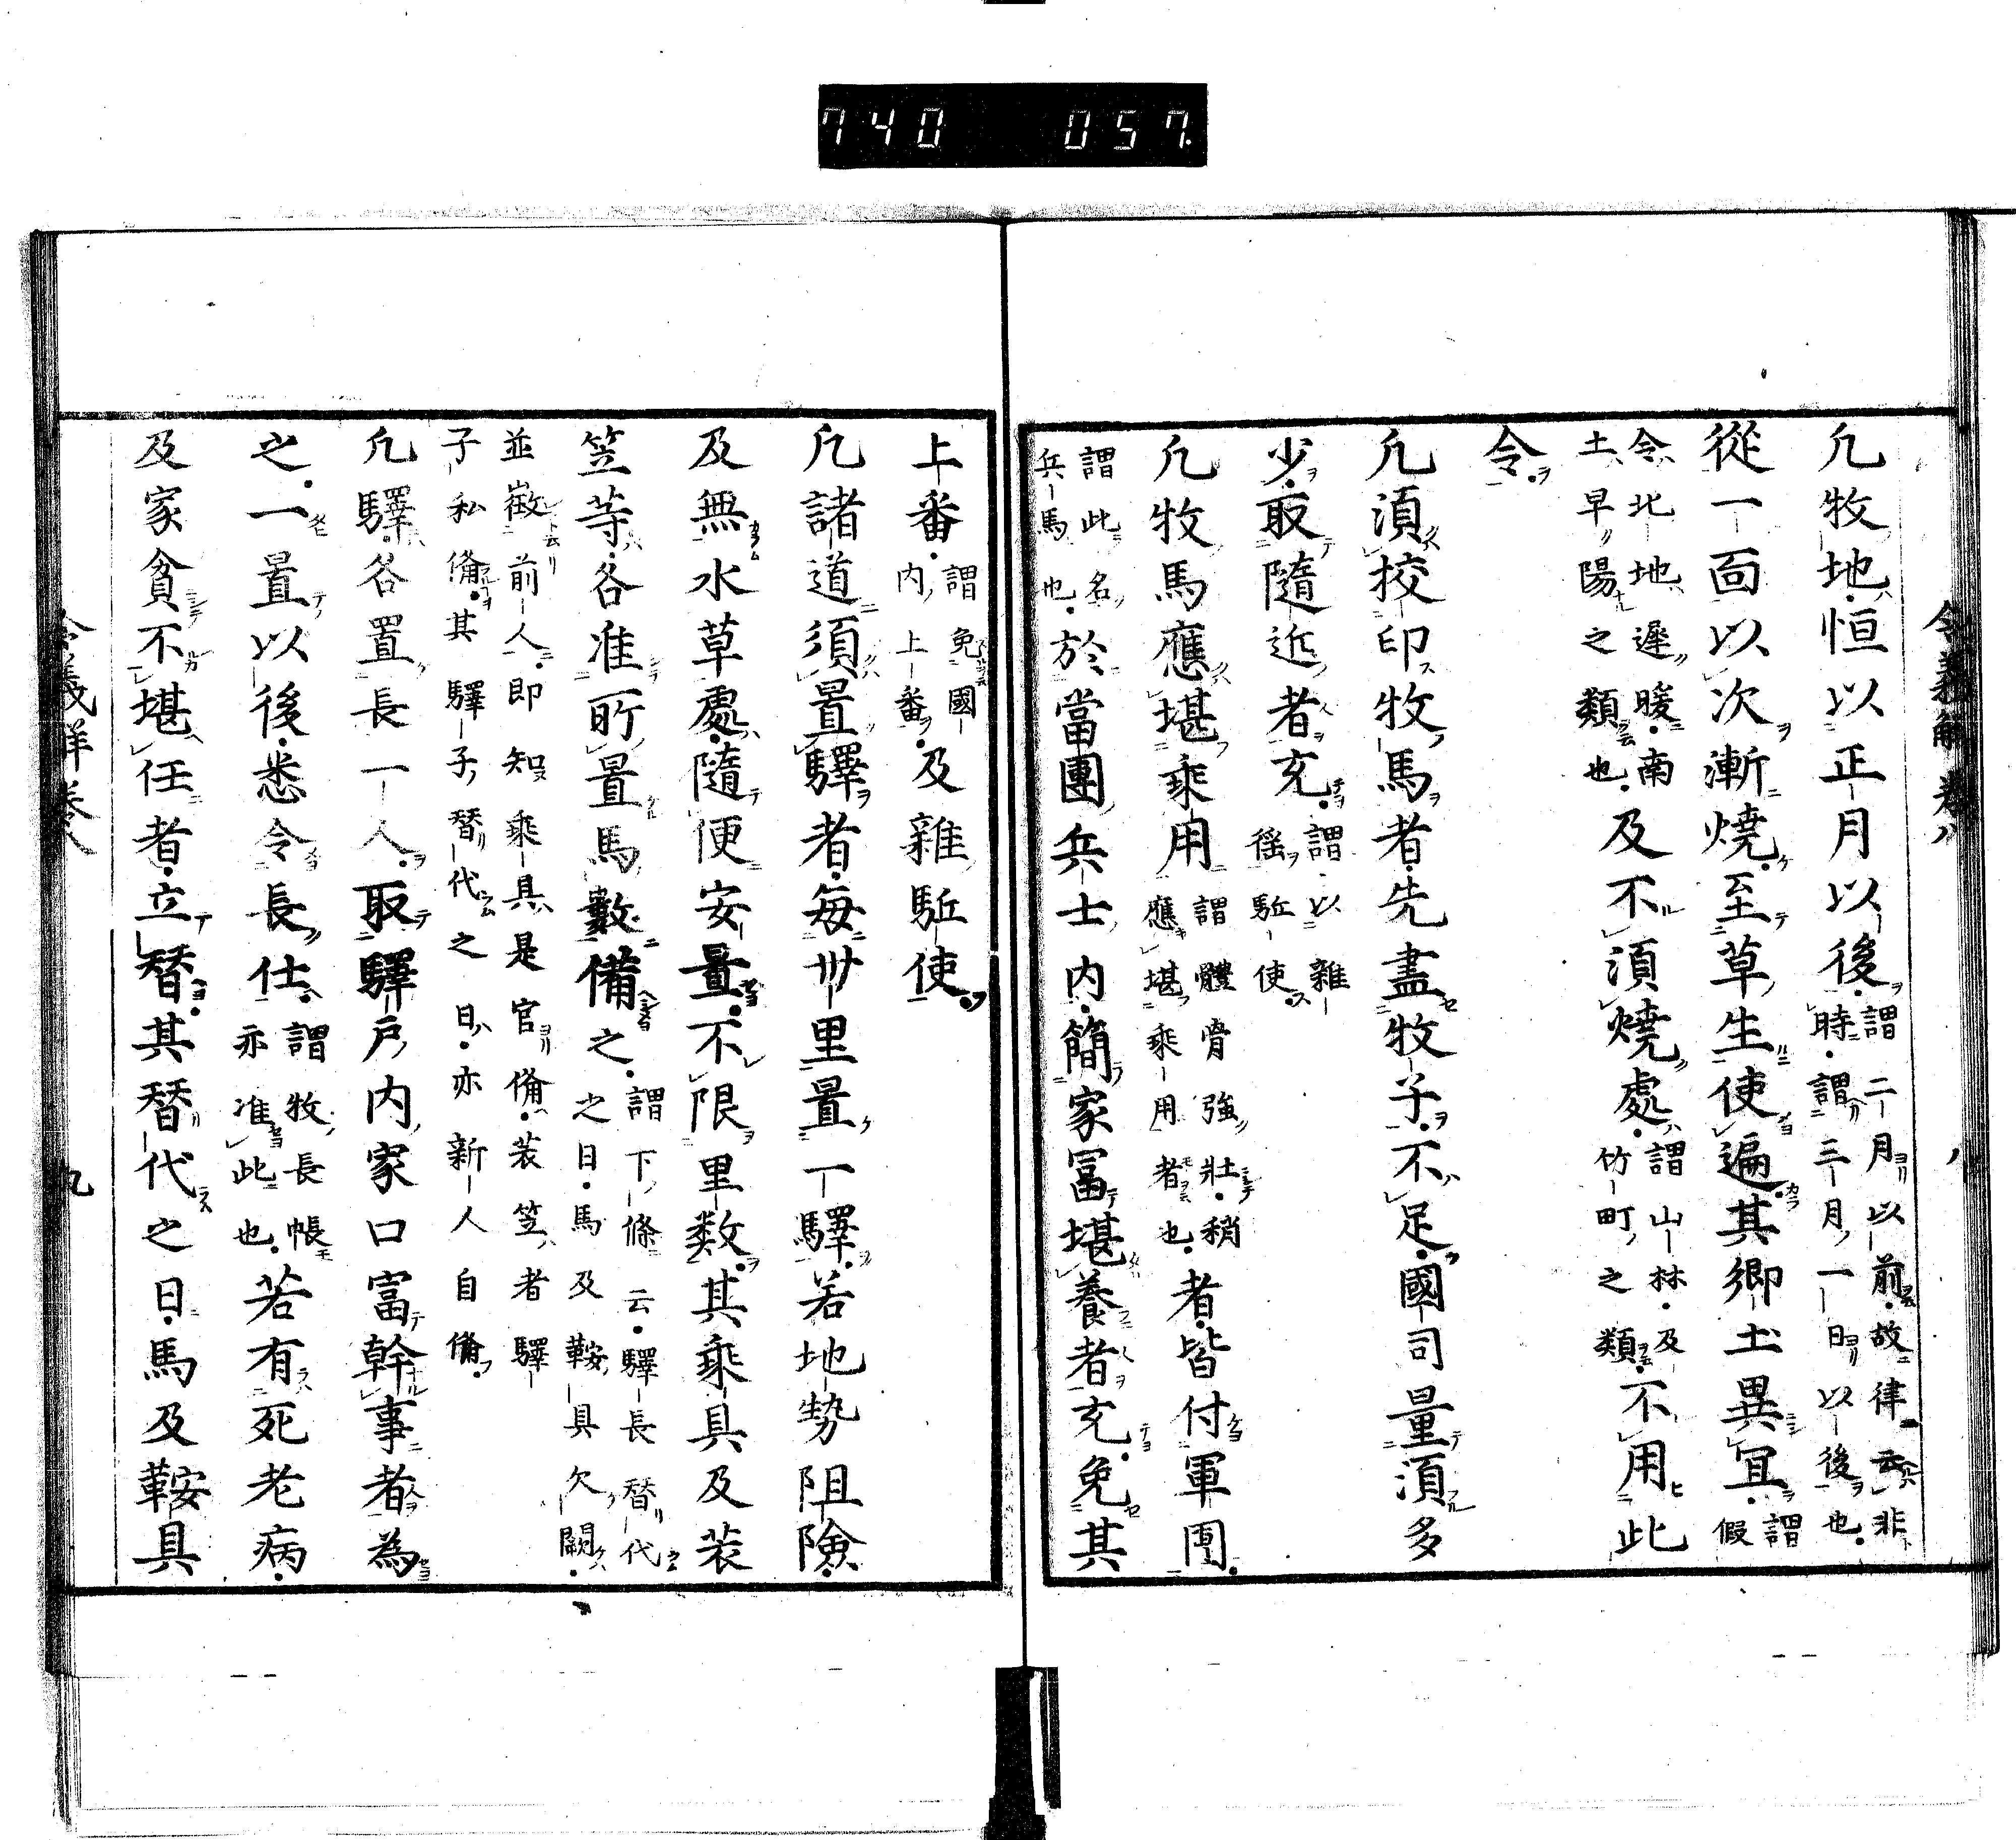 740 057
令義解 卷八 八
凡牧地恒以正月以後謂二月以前故律云非時謂三月一日以後也
從一面以次漸燒至草生使遍其鄉土異冝謂假
令北地遲暖南土早陽之類也及不湏燒處謂山林及竹町之類不用此
令
凡湏挍印牧馬者先盡牧子不足國司量湏多
少取隨近者充謂以雜徭駈使
凡牧馬應堪乘用謂體骨強壯稍應堪乘用者也者皆付軍團
謂此名兵馬也於當團兵士内簡家冨堪養者充免其
上番謂免國内上番及雜駈使
凡諸道須置驛者毎卅里置一驛若地勢阻險
及無水草處隨便安置不限里数其乘具及装
笠等各准所置馬數備之謂下條云驛長替代之日馬及鞍具欠闕
並徴前人即知乘具是官俻装笠者驛子私俻其驛子替代之日亦新人自俻
凡驛各置長一人取驛戸内家口富幹事者為
之一置以後悉令長仕謂牧長帳亦准此也若有死老病
及家貧不堪任者立替其替代之日馬及鞍具
令義解卷八 九